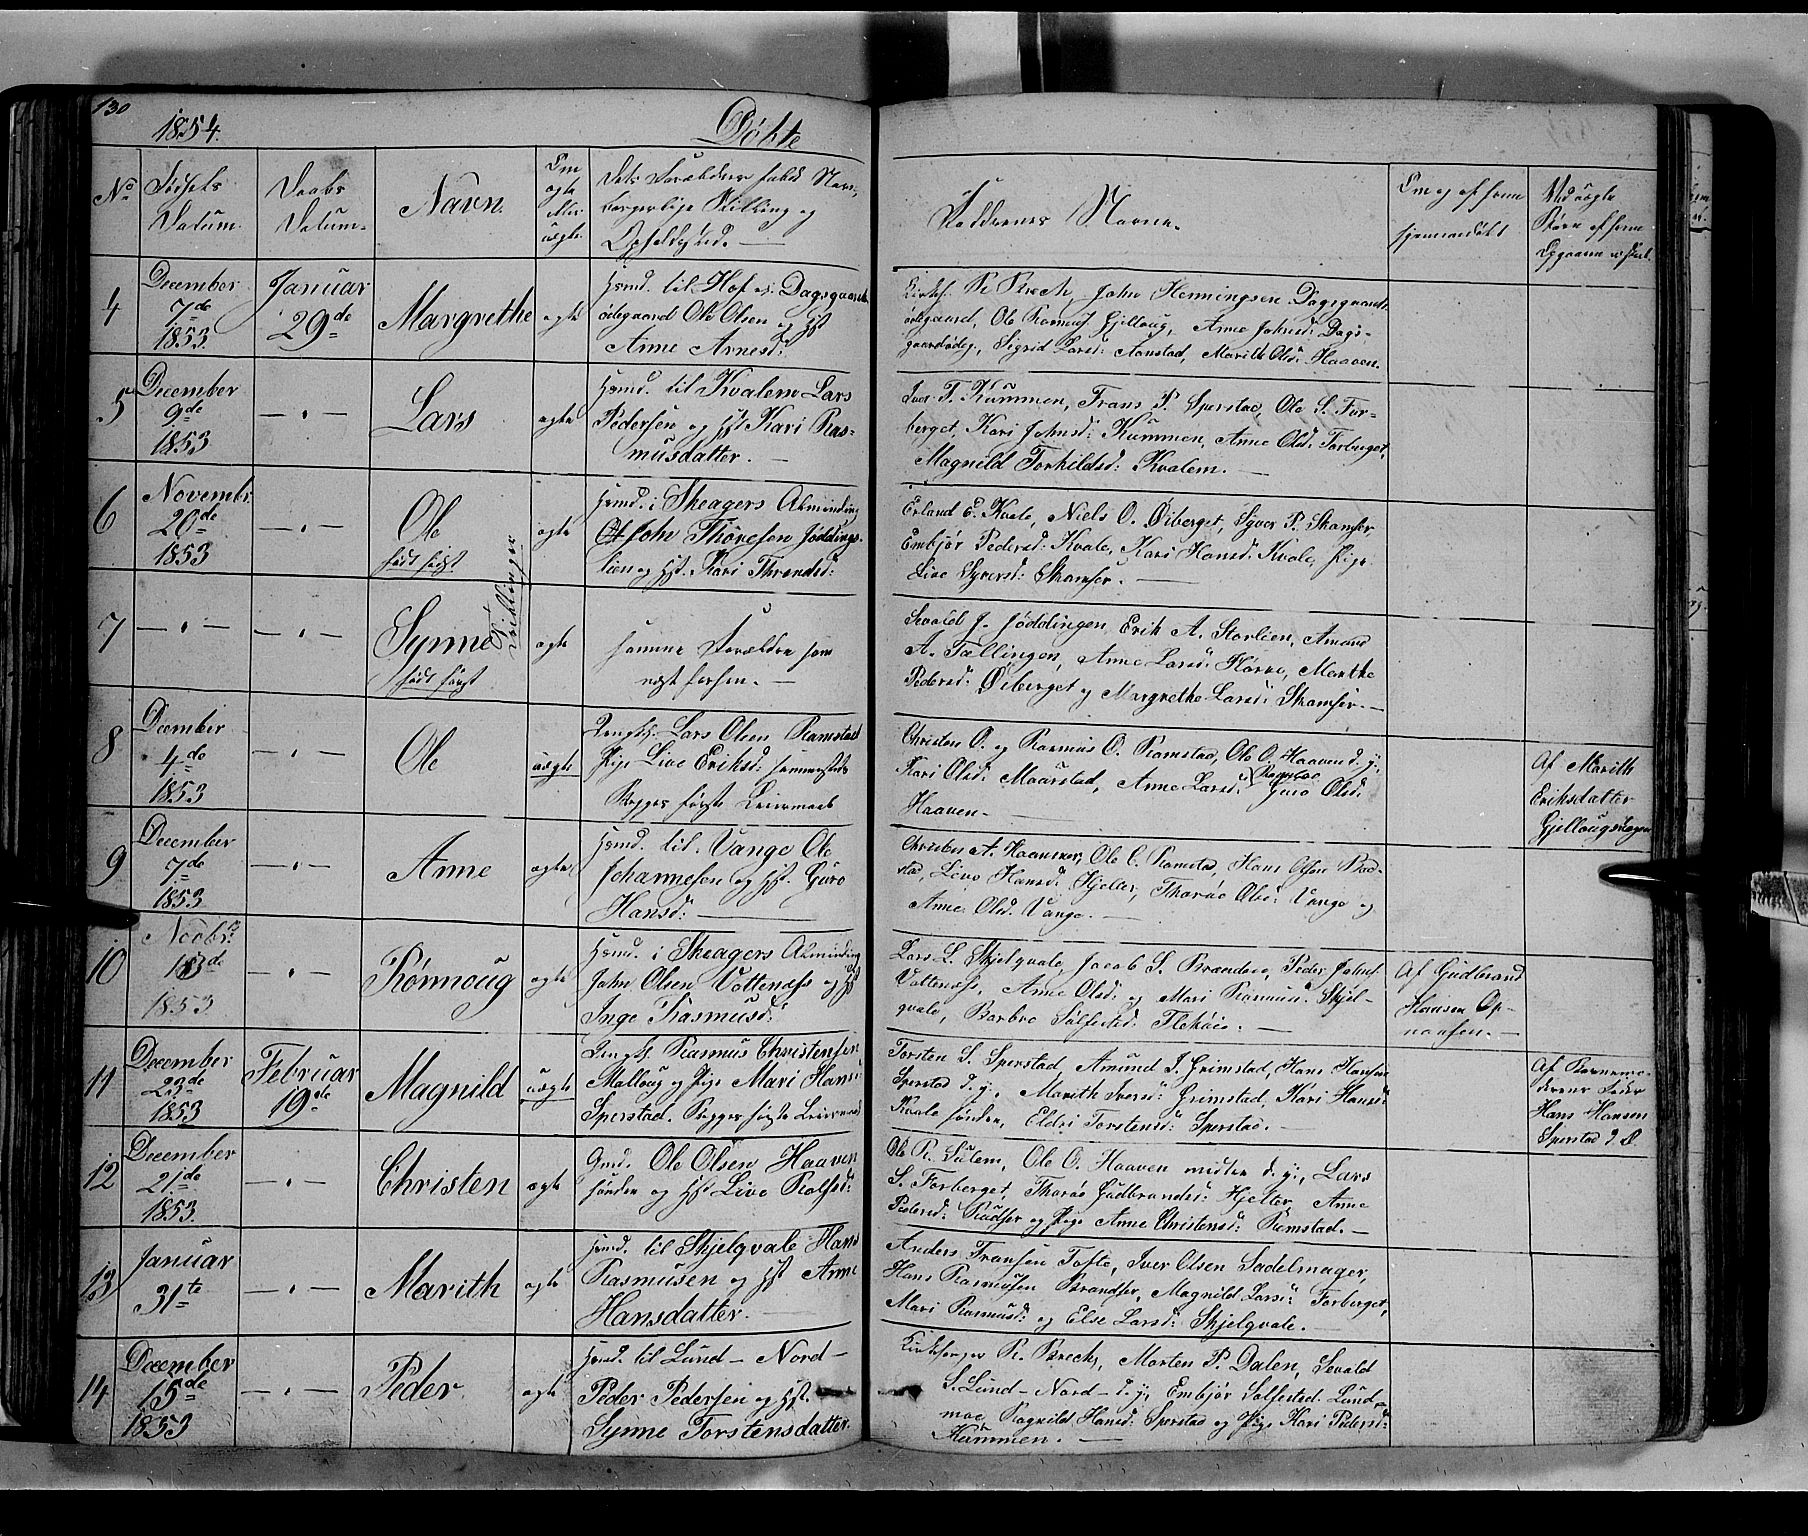 130
1854.
Döbte
No
Födsels
Datum.
Daabs
Datum.
Navn.
Om
ægte
eller
uægte.
Opholdssted. —
Faddernes Navne.
Om og af hvem
hjemmedöbt
Ved uægte
4
December
7de
1853.
Januar
29de
Margrethe
ægte
Gmd. til Hof og Dagsgaard
ödegaard Ole Olsen og Hst
Anne Arnesd:
Kirkes. R. Breck, John Henningsen Dagsgaards
ödegaard, Ole Rasmus. Gjilloug, Anne Johnsd: Dags-
gaardsödeg., Sigrid Larsd: Aanstad, Marith Olsd: Haaven.
5
December
9de
1853
— " —
Lars
ægte
Gmd. til Kvalem Lars
Pedersen og Hst Kari Ras-
musdatter. —
Iver T. Kummen, Frans P. Sperstad, Ole S. For-
berget, Kari Johnsd: Kummen, Anne Olsd: Forberget,
Magnild Torkildsd: Kvalem. —
6
Novembr.
20de
1853
— " —
Ole
födt sidst
Tvillinger
ægte
Gmd. i Skeagers Alminding
John Thoresen Jöddings-
lien og Hst. Kari Throndsd:
Erland E. Kvale, Niels O. Öiberget, Syver P. Skamser,
Embjör Pedersd: Kvale, Kari Hansd: Kvale, Pige
Live Syversd: Skamser. —
7
— " —
— " —
Synne
födt först
ægte
samme Forældre som
næst forhen. —
Sevald J. Jöddingen, Erik A. Storlien, Amund
A. Tællingen, Anne Larsd: Flörne, Marthe
Pedersd: Öiberget og Margrethe Larsd: Skamser. —
8
December
4de
1853
— " —
Ole
uægte
Ungk. Lars Olsen Ramstad
Pige Live Eriksd: sammesteds
Begges förste Leiermaal
Christen O. og Rasmus O. Ramstad, Ole O. Haaven d. y.,
Kari Olsd: Maurstad, Anne Larsd: Ramstad Guro Olsd:
Haaven. —
Af Marith
Eriksdatter
Gjillougshagen
9
December
7de
1853
— " —
Anne
ægte
Gmd. til Vange Ole
Johannesen og Hst. Guro
Hansd: —
Christen A. Haansnar, Ole C. Ramstad, Hans Olsen Bad-
stad, Live Hansd: Hjelter, Thoröe Olsd: Vange og
Anne Olsd. Vange. —
10
Novbr.
13de
1853
— " —
Rönnoug
ægte
Gmd. i Skeagers Alminding
John Olsen Vottenæss og Hst
Inge Rasmusd:
Lars L. Skjelqvale, Jacob S. Brændvo, Peder Johns.
Vottenæss, Anne Olsd: og Mari Rasmusd: Skjel-
qvale, Barbro Solfestsd: Fleköie. —
Af Gudbrand
Hansen Op-
nonsen. —
11
December
23de
1853
Februar
19de
Magnild
uægte
Ungk. Rasmus Christensen
Malloug og Pige Mari Hansd:
Sperstad. Begges förste Leiermaal
Torsten S. Sperstad, Amund I. Grimstad, Hans Hansen
Sperstad d. y., Marith Iversd: Grimstad, Kari Hansd:
Kvale söndre, Eldri Torstensd: Sperstad. —
Af Barnemo-
derens Fader
Hans Hansen
Sperstad
12
December
21de
1853.
— " —
Christen
ægte
Gmd. Ole Olsen Haaven
söndre og Hst Live Rolfsd:
Ole R. Sulem, Ole O. Haaven midtre d. y., Lars
S. Forberget, Thoröe Gudbrandsd: Hjelter, Anne
Pedersd: Rudser og Pige Anne Christensd: Ramstad. —
13
Januar
31te
— " —
Marith
ægte
Gmd. til Skjelqvale Hans
Rasmusen og Hst Anne
Hansdatter. —
Anders Fransen Tofte, Iver Olsen Sadelmager,
Hans Rasmusen Brandser, Magnild Larsd: Forberget,
Mari Rasmusd: og Else Larsd: Skjelqvale.
14
December
15de
1853
— " —
Peder
ægte
Gmd. til Lund – Nord –
Peder Pedersen og Hst.
Synne Torstensdatter.
Kirkesanger R. Breck, Morten P. Dalen, Sevald
S. Lund – Nord – d. y., Embjör Solfestsd. Lund-
moe, Ragnild Hansd: Sperstad og Pige Kari Pedersd:
Kummen. —